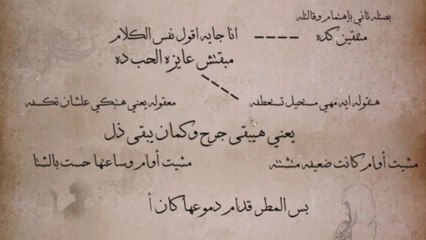 بصتله تاني بإهتمام وقالتله
متفقين كده
انا جايه اقول نفس الكلام
مبقتش عايزه الحب ده
هقوله ايه مهي مستحيل تستعطفه
معقوله يعني هتبكي علشان تكسفه
يعني هيبقى جرح وكمان يبقى ذل
مشيت أوام كانت ضعيفه متشتته
مشيت أوام وساعتها حست بالشتا
بس المطر قدام دموعها كان أ